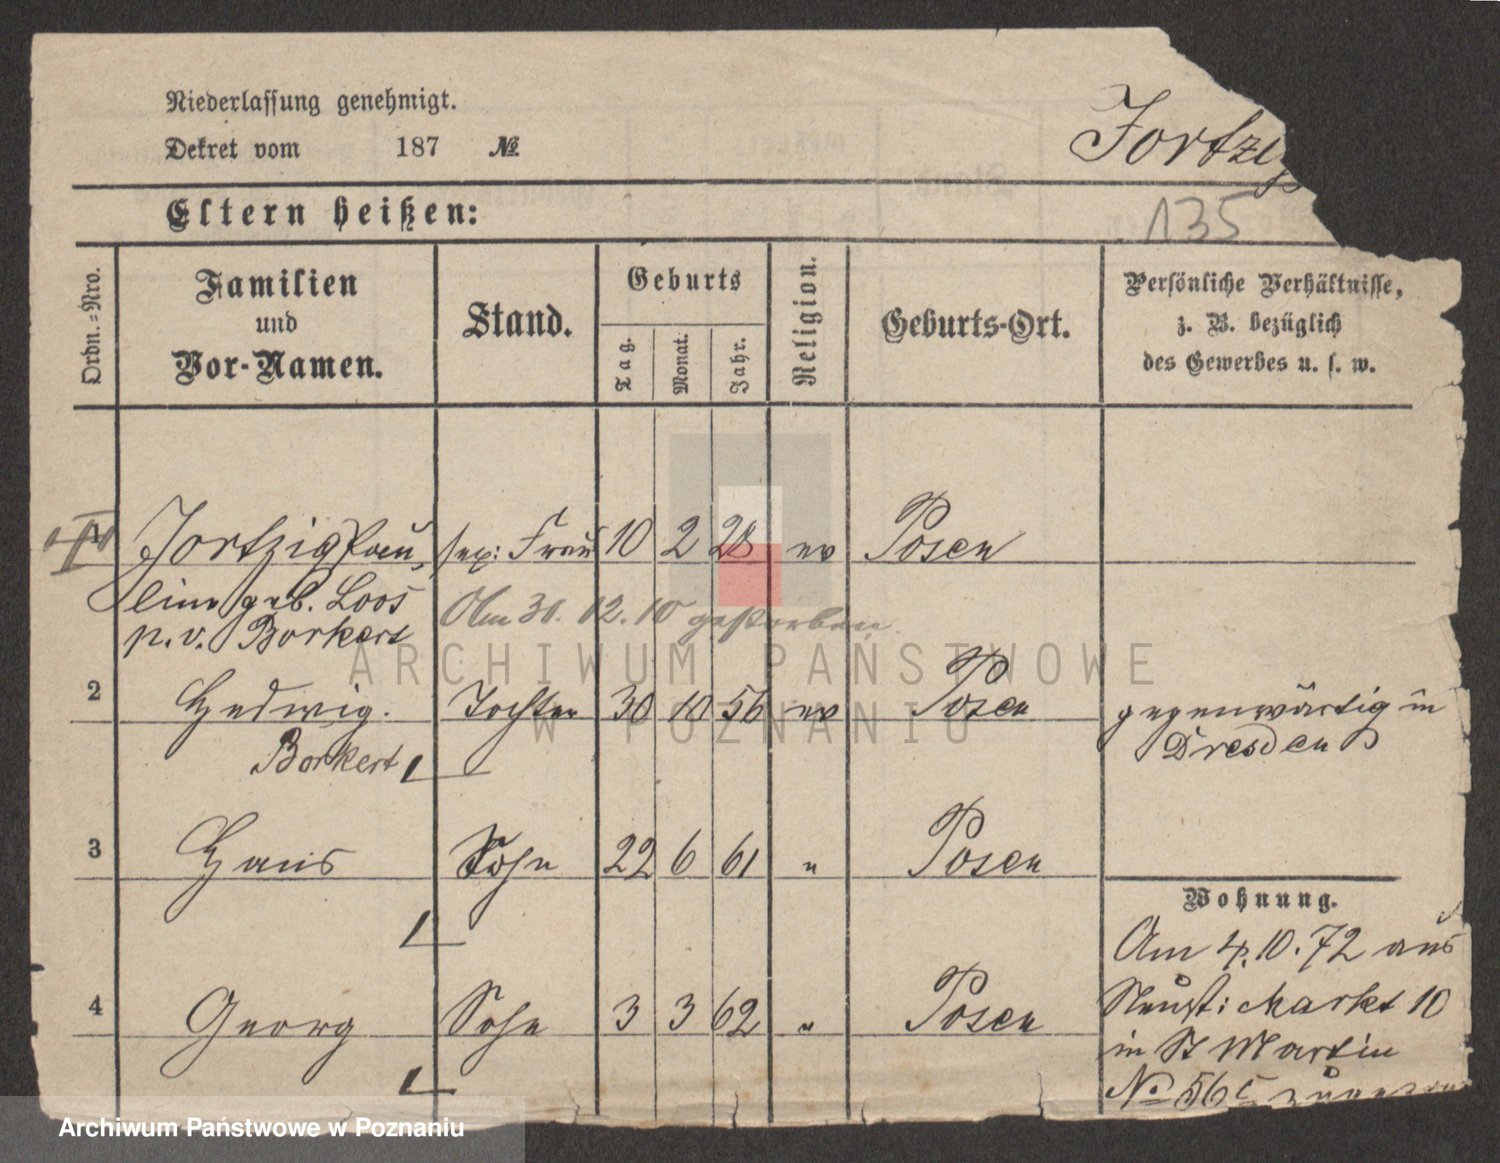 Niederlassung genehmigt.
Dekret vom 187 №
Jortzig
135
Eltern heißen:
Ordn.-Nro.
Familien
und
Vor-Namen.
Stand.
Geburts
Tag.
Monat.
Jahr.
Religion.
Geburts-Ort.
Persönliche Verhältnisse,
z. B. bezüglich
des Gewerbes u. s. w.
Jortzig Pau- sep: Frau 10 2 28 ev Posen
line geb. Loos Am 30.12.10 gestorben
p. v. Borkert
2 Hedwig. Tochter 30 10 56 ev Posen gegenwärtig in
Borkert Dresden
3 Hans Sohn 22 6 61 " Posen
Wohnung.
Am 4.10.72 aus
4 Georg Sohn 3 3 62 " Posen Neust: Markt 10
in St Martin
No 56
ARCHIWUM PAŃSTWOWE
W POZNANIU
Archiwum Państwowe w Poznaniu